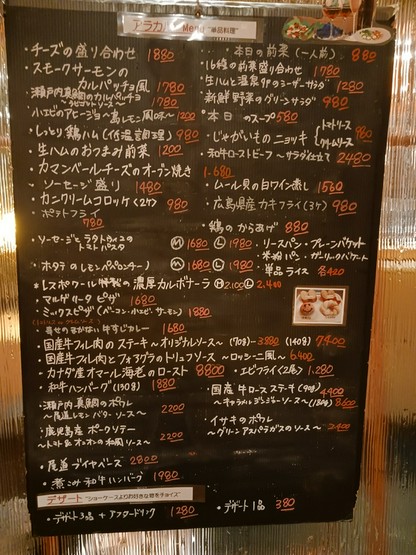 アラカルト Menu "単品料理"
・チーズの盛り合わせ 1880
・スモークサーモンの
カルパッチョ風 1780
・瀬戸内真鯛のカルパッチョ
～ラビゴットソース～ 1780
・小エビのアヒージョ～島レモン風味～ 1200
・しっとり鶏ハム(低温調理) 980
・生ハムのおつまみ前菜 1200
・カマンベールチーズのオーブン焼き 1.680
・ソーセージ盛り 1480
・カニクリームコロッケ<2ケ> 980
・ポテトフライ
780
・ソーセージとラタトゥイユの
トマトパスタ Ⓜ 1680 Ⓛ 1980
・ホタテのレモンペペロンチーノ Ⓜ 1680 Ⓛ 1980
*レスポワール特製の濃厚カルボナーラ Ⓜ2.100 Ⓛ 2.400
・マルゲリータ ピザ 1680
・ミックスピザ (ベーコン・小エビ・サーモン) 1880
牛すじカレー 1680
・国産牛フィレ肉のステーキ～オリジナルソース～ (70g)-3880 (140g) 7400
・国産牛フィレ肉とフォアグラのトリュフソース ～ロッシーニ風～ 6400
・カナダ産オマール海老のロースト 8800
・エビフライ<2尾> 1.280
・和牛ハンバーグ(130g) 1880
・瀬戸内真鯛のポワレ
～尾道レモンバターソース～ 2200
・鹿児島産ポークソテー
～トマトとオニオンの和風ソース～ 2200
・尾道ブイヤベース 2800
・煮こみ和牛ハンバーグ 1980
・本日の前菜(一人前) 880
・16種の前菜盛り合わせ 1780
・生ハムと温泉卵のシーザーサラダ 1280
・新鮮野菜のグリーンサラダ 980
・本日のスープ 580
・じゃがいものニョッキ {トマトソース 980
クリームソース
・和牛ローストビーフ～サラダ仕立て 2480
・ムール貝の白ワイン蒸し 1580
・広島県産カキフライ(3ケ) 980
・鶏のからあげ 880
・リースパン・プレーンバケット
・米粉パン・ガーリックバケット
・単品ライス 各420
・国産牛ロースステーキ(90g) 4900
～キャラメルジンジャーソース～(180g) 8600
・イサキのポワレ
～グリーンアスパラガスのソース～ 2400
デザート "ショーケースよりお好きな物をチョイス"
・デザート3品+アフタードリンク 1280
・デザート1品 380